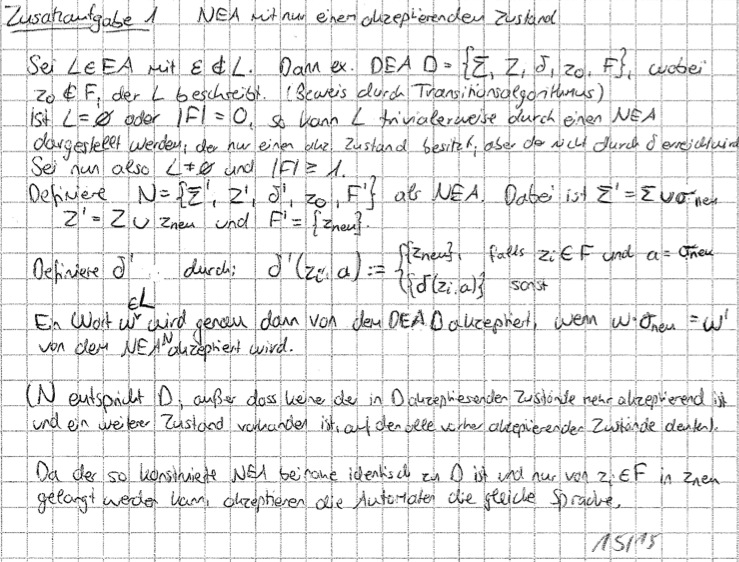 Zusatzaufgabe 1 NEA mit nur einem akzeptierenden Zustand
Sei L ∈ EA mit ε ∉ L. Dann ex. DEA D = {Σ, Z, δ, z₀, F}, wobei
z₀ ∉ F, der L beschreibt. (Beweis durch Transitionsalgorithmus)
Ist L = ∅ oder |F| = 0, so kann L trivialerweise durch einen NEA
dargestellt werden, der nur einen akz. Zustand besitzt, aber der nicht durch δ erreicht wird
Sei nun also L ≠ ∅ und |F| ≥ 1.
Definiere N = {Σ', Z', δ', z₀, F'} als NEA. Dabei ist Σ' = Σ ∪ σneu
Z' = Z ∪ zneu und F' = {zneu}.
Definiere δ' durch: δ'(zi, a) := { {zneu}, falls zi ∈ F und a = σneu
{δ(zi, a)} sonst
Ein Wort w ∈ L wird genau dann von dem DEA D akzeptiert, wenn w·σneu = w'
von dem NEA N akzeptiert wird.
(N entspricht D, außer dass keiner der in D akzeptierenden Zustände mehr akzeptierend ist
und ein weiterer Zustand vorhanden ist, auf den alle vorher akzeptierenden Zustände deuten).
Da der so konstruierte NEA beinahe identisch zu D ist und nur von zi ∈ F in zneu
gelangt werden kann, akzeptieren die Automaten die gleiche Sprache.
15/15